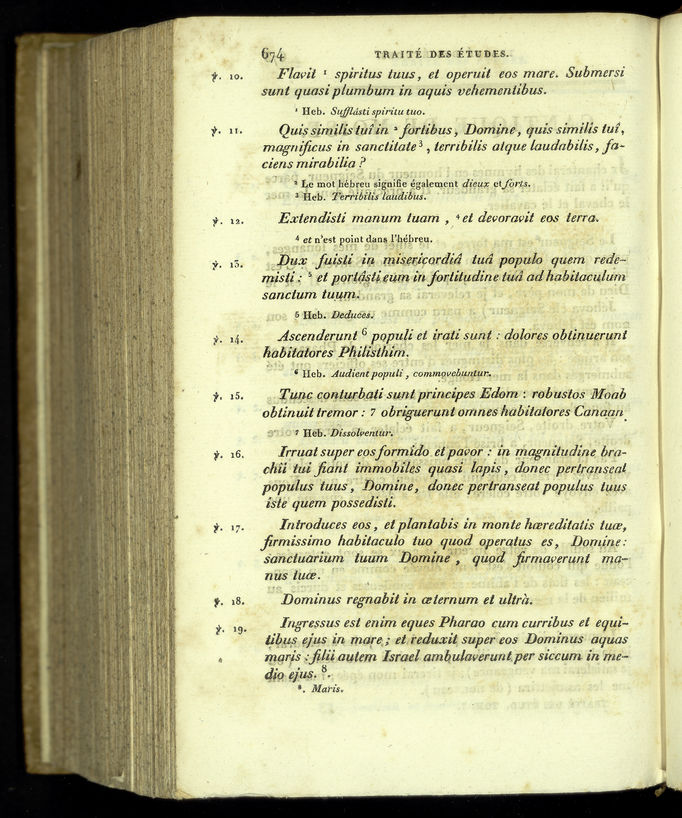 674 TRAITÉ DES ÉTUDES.
℣. 10. Flavit ¹ spiritus tuus, et operuit eos mare. Submersi
sunt quasi plumbum in aquis vehementibus.
¹ Heb. Sufflásti spiritu tuo.
℣. 11. Quis similis tuî in ² fortibus, Domine, quis similis tuî,
magnificus in sanctitate ³, terribilis atque laudabilis, fa-
ciens mirabilia ?
² Le mot hébreu signifie également dieux et forts.
³ Heb. Terribilis laudibus.
℣. 12. Extendisti manum tuam , ⁴ et devoravit eos terra.
⁴ et n'est point dans l'hébreu.
℣. 13. Dux fuisti in misericordiâ tuâ populo quem rede-
misti : ⁵ et portâsti eum in fortitudine tuâ ad habitaculum
sanctum tuum.
⁵ Heb. Deduces.
℣. 14. Ascenderunt ⁶ populi et irati sunt : dolores obtinuerunt
habitatores Philisthim.
⁶ Heb. Audient populi , commovebuntur.
℣. 15. Tunc conturbati sunt principes Edom : robustos Moab
obtinuit tremor : 7 obriguerunt omnes habitatores Canaan.
⁷ Heb. Dissolventur.
℣. 16. Irruat super eos formido et pavor : in magnitudine bra-
chii tui fiant immobiles quasi lapis, donec pertranseat
populus tuus, Domine, donec pertranseat populus tuus
iste quem possedisti.
℣. 17. Introduces eos, et plantabis in monte hæreditatis tuæ,
firmissimo habitaculo tuo quod operatus es, Domine:
sanctuarium tuum Domine , quod firmaverunt ma-
nus tuæ.
℣. 18. Dominus regnabit in æternum et ultrà.
℣. 19. Ingressus est enim eques Pharao cum curribus et equi-
tibus ejus in mare ; et reduxit super eos Dominus aquas
maris : filii autem Israel ambulaverunt per siccum in me-
dio ejus. ⁸.
⁸. Maris.